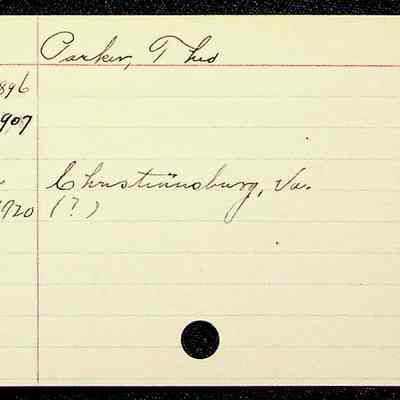 Parker, Theo
896
907
Christiansburg, Va.
1920 (?)